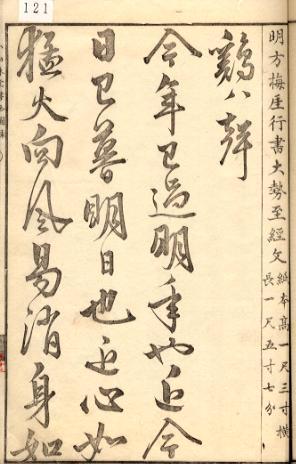 121
明方梅厓行書大勢至經文
紙本高一尺三寸橫
長一尺五寸七分
鷄八聲
今年已過明年也近今
日已暮明日也近心如
猛火向風易消身如